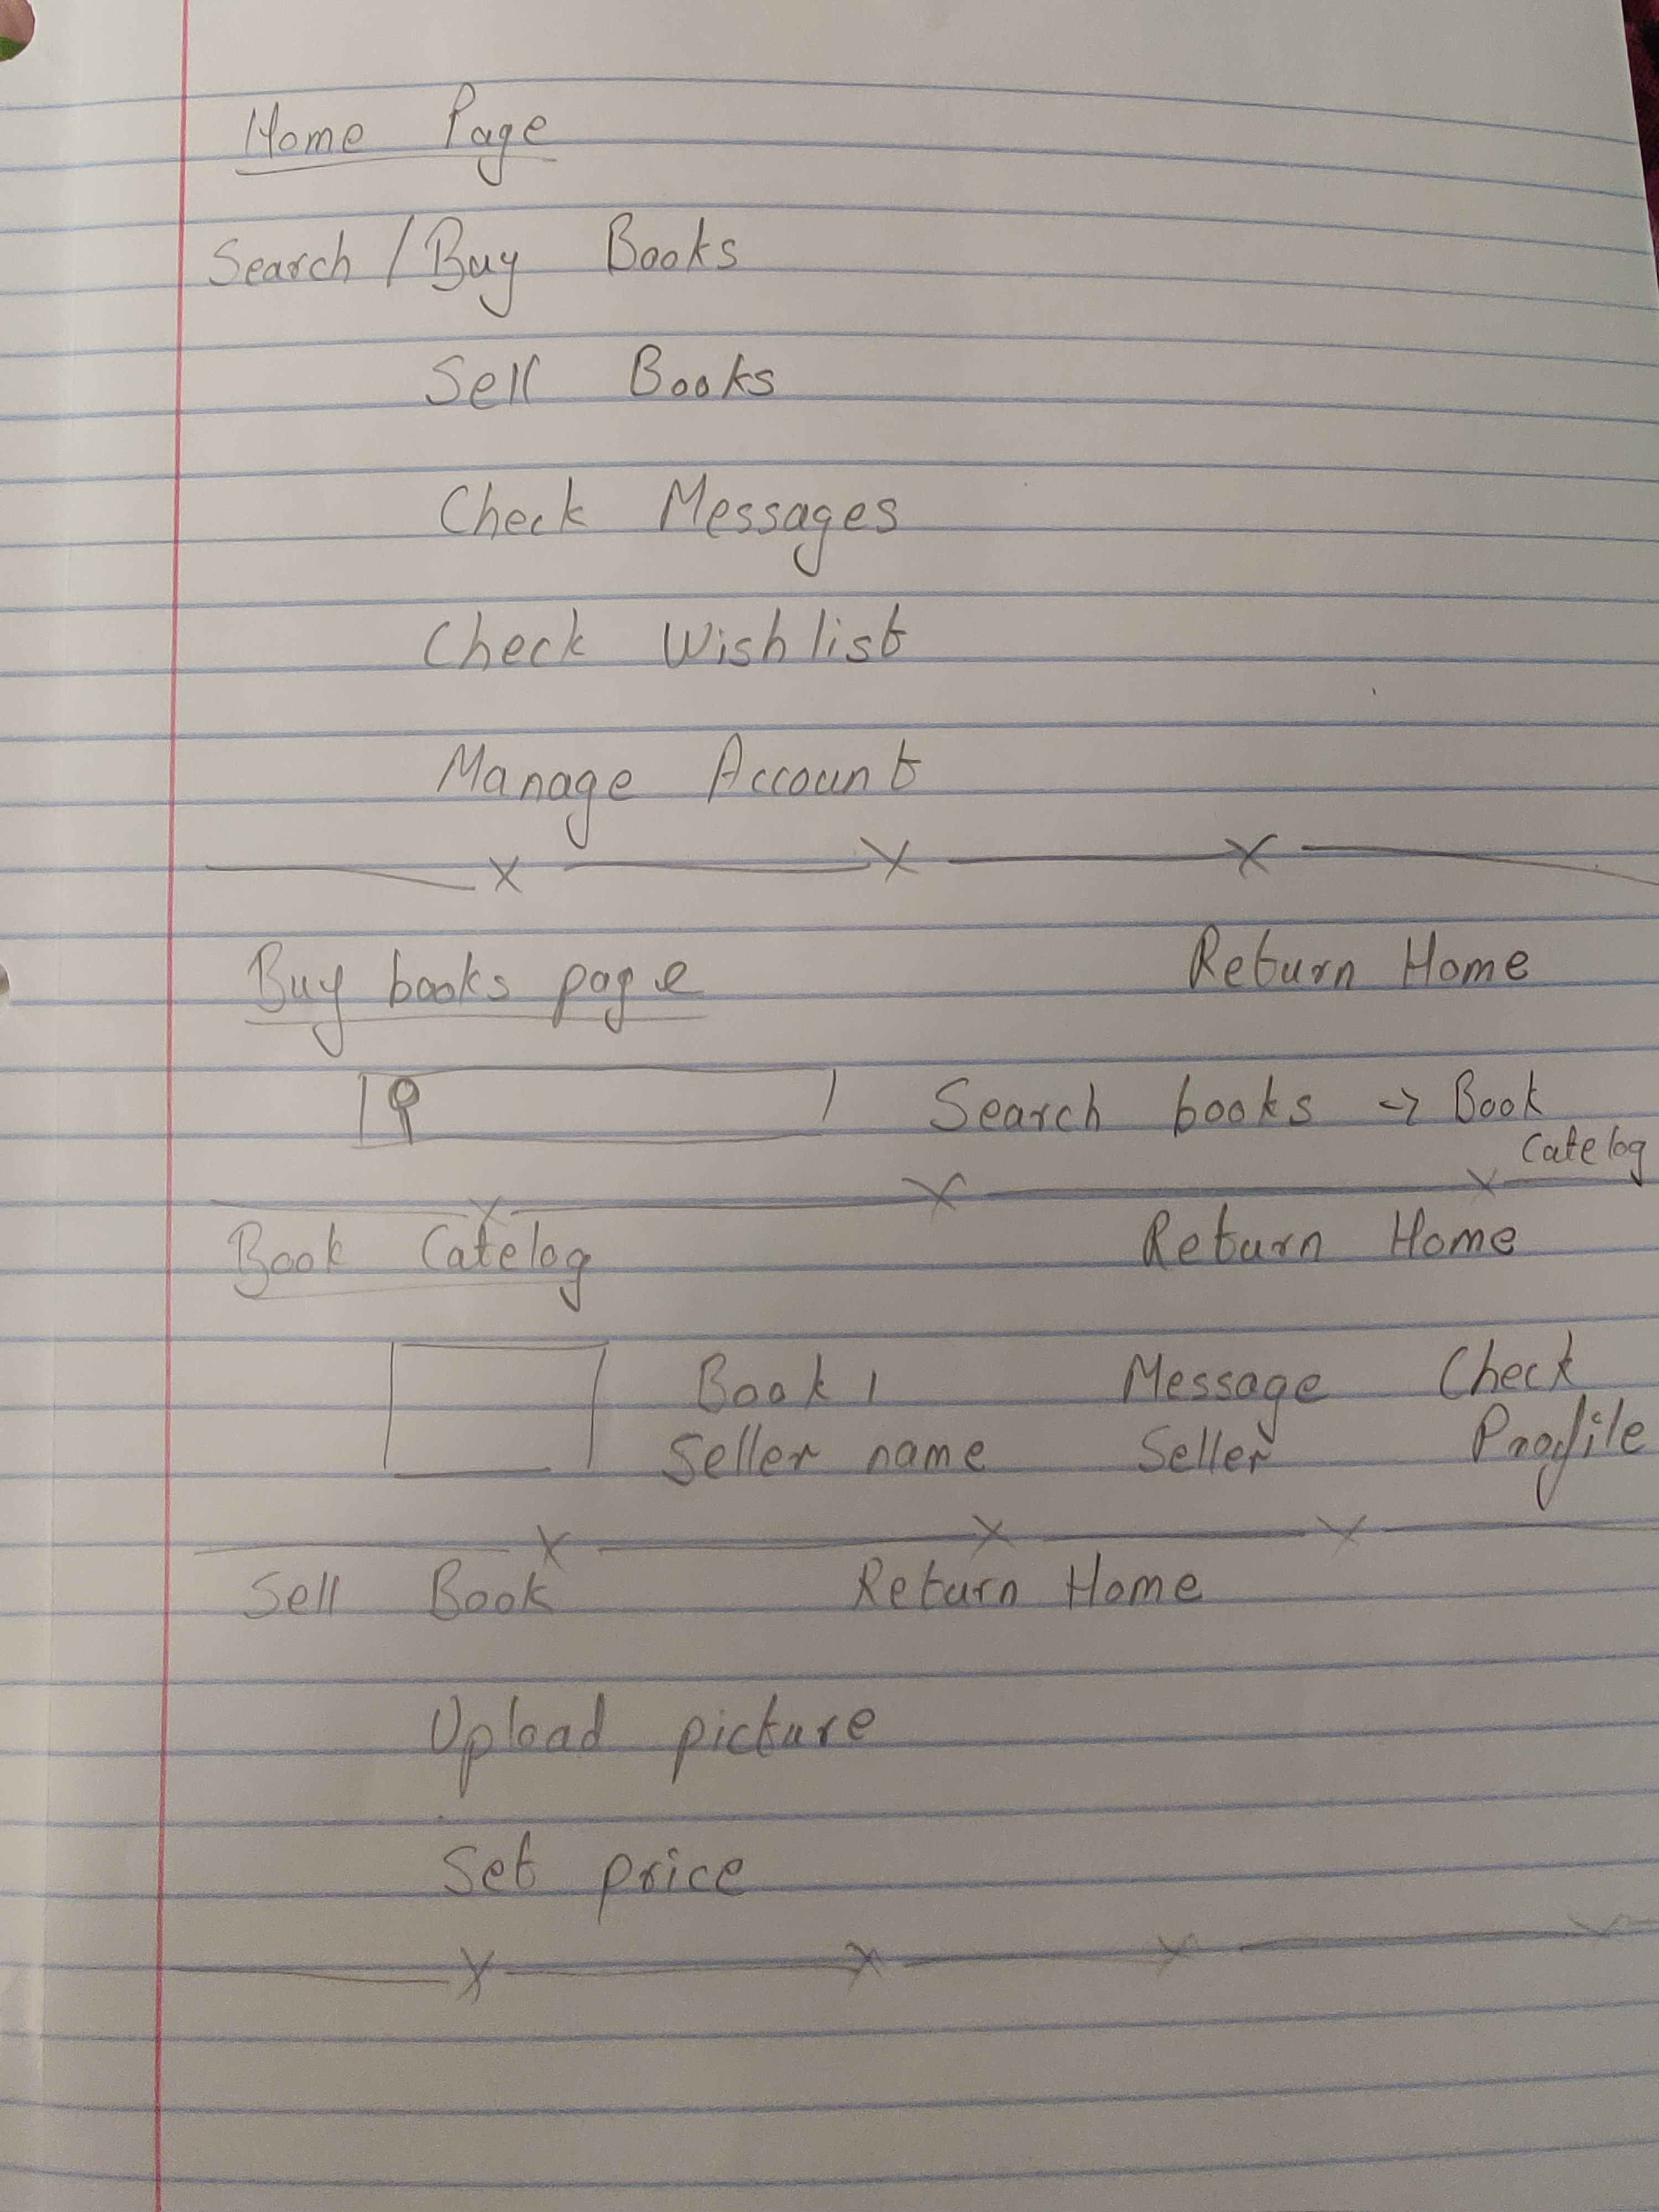 Home Page
Search / Buy Books
Sell Books
Check Messages
Check Wishlist
Manage Account
Buy books page Return Home
Search books -> Book
Catelog
Book Catelog Return Home
Book 1 Message Check
Seller name Seller Profile
Sell Book Return Home
Upload picture
Set price